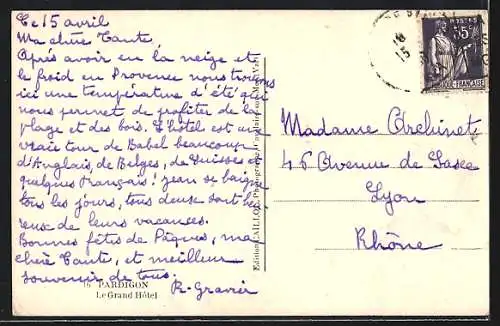 Le 15 avril
Ma chère Tante
Après avoir eu la neige et
le froid en Provence nous trouvons
ici une température d'été qui
nous permet de profiter de la
plage et des bois. L'hôtel est une
vraie tour de Babel beaucoup
d'Anglais, de Belges, de Suisses et
quelques Français. Jean se baigne
tous les jours, tous deux sont heu
reux de leurs vacances.
Bonnes fêtes de Pâques, ma
chère Tante, et meilleur
souvenir de tous.
R. Gravier
16 PARDIGON
Le Grand Hôtel
Edition CAILLOL, Photographe
POSTES
55c
FRANÇAISE
Madame Archinet
46 Avenue de Saxe
Lyon
Rhône